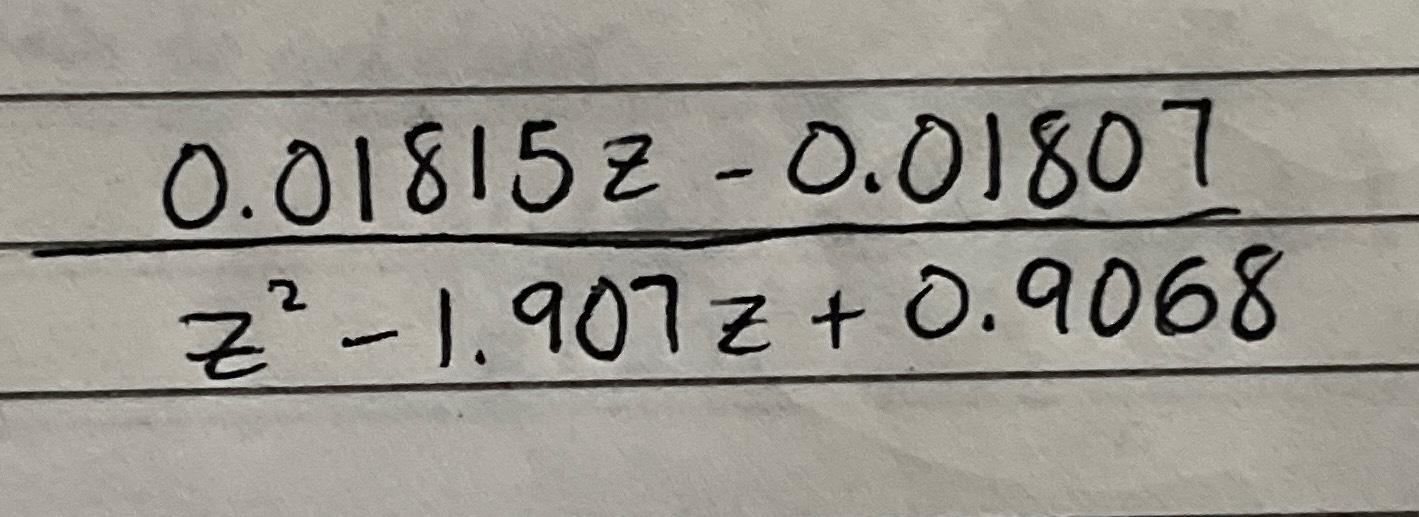 0.01815z - 0.01807
z² - 1.907z + 0.9068